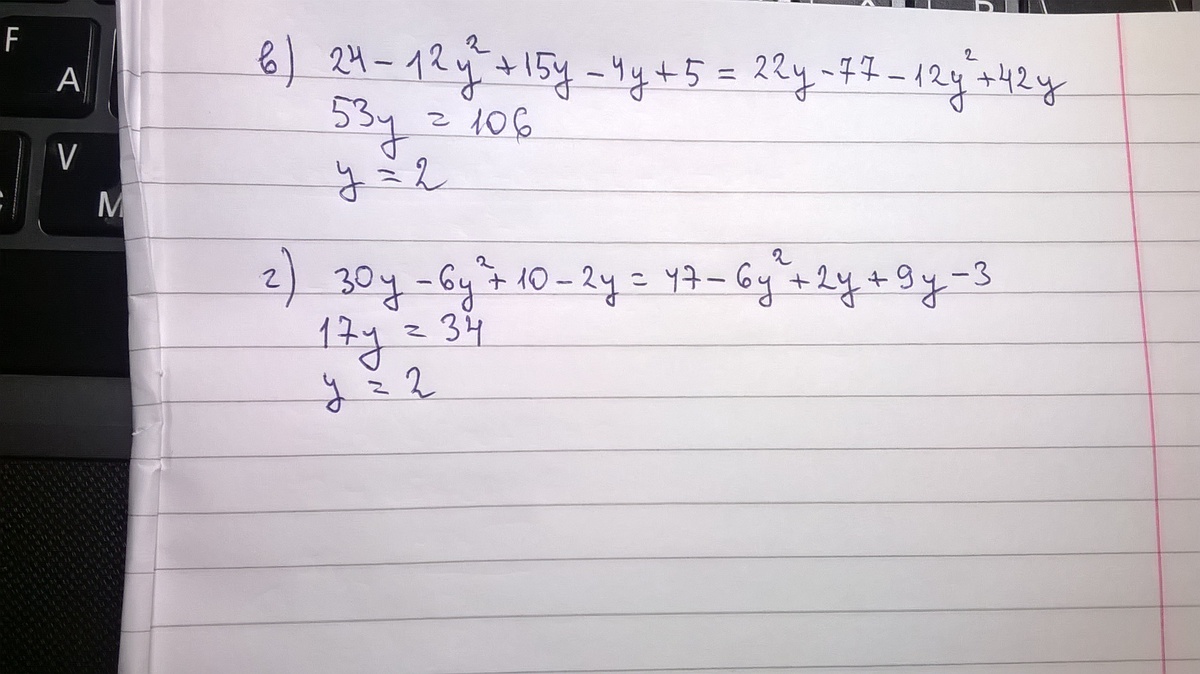 F
A
V
M
в) 24 - 12y² + 15y - 4y + 5 = 22y - 77 - 12y² + 42y
53y = 106
y = 2
г) 30y - 6y² + 10 - 2y = 47 - 6y² + 2y + 9y - 3
17y = 34
y = 2